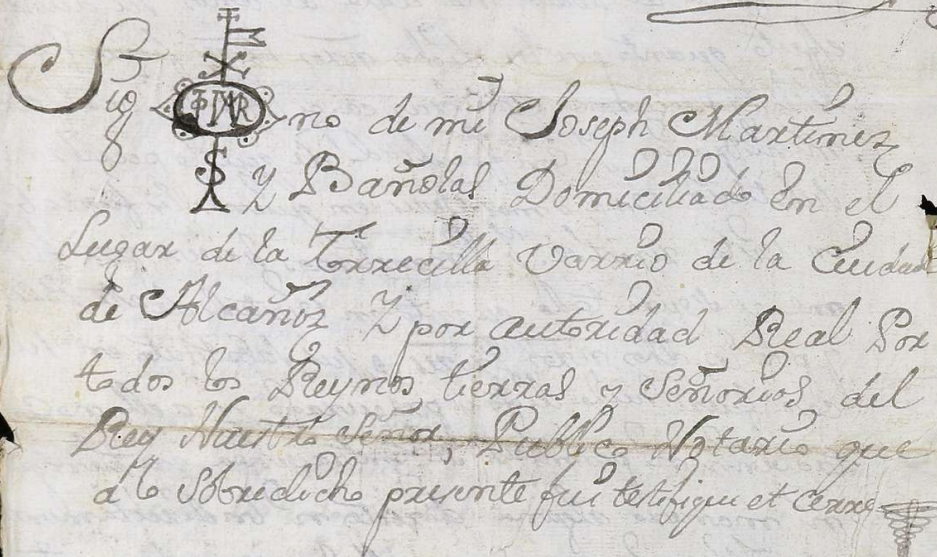 Sig no de mi Joseph Martinez
y Bañolas Domiciliado en el
Lugar de la Torrecilla Varrio de la Ciudad
de Alcañiz Y por autoridad Real Por
todos los Reynos tierras y Señorios del
Rey Nuestro Señor, Publico Notario que
a lo Sobredicho presente fui testifique et cerre